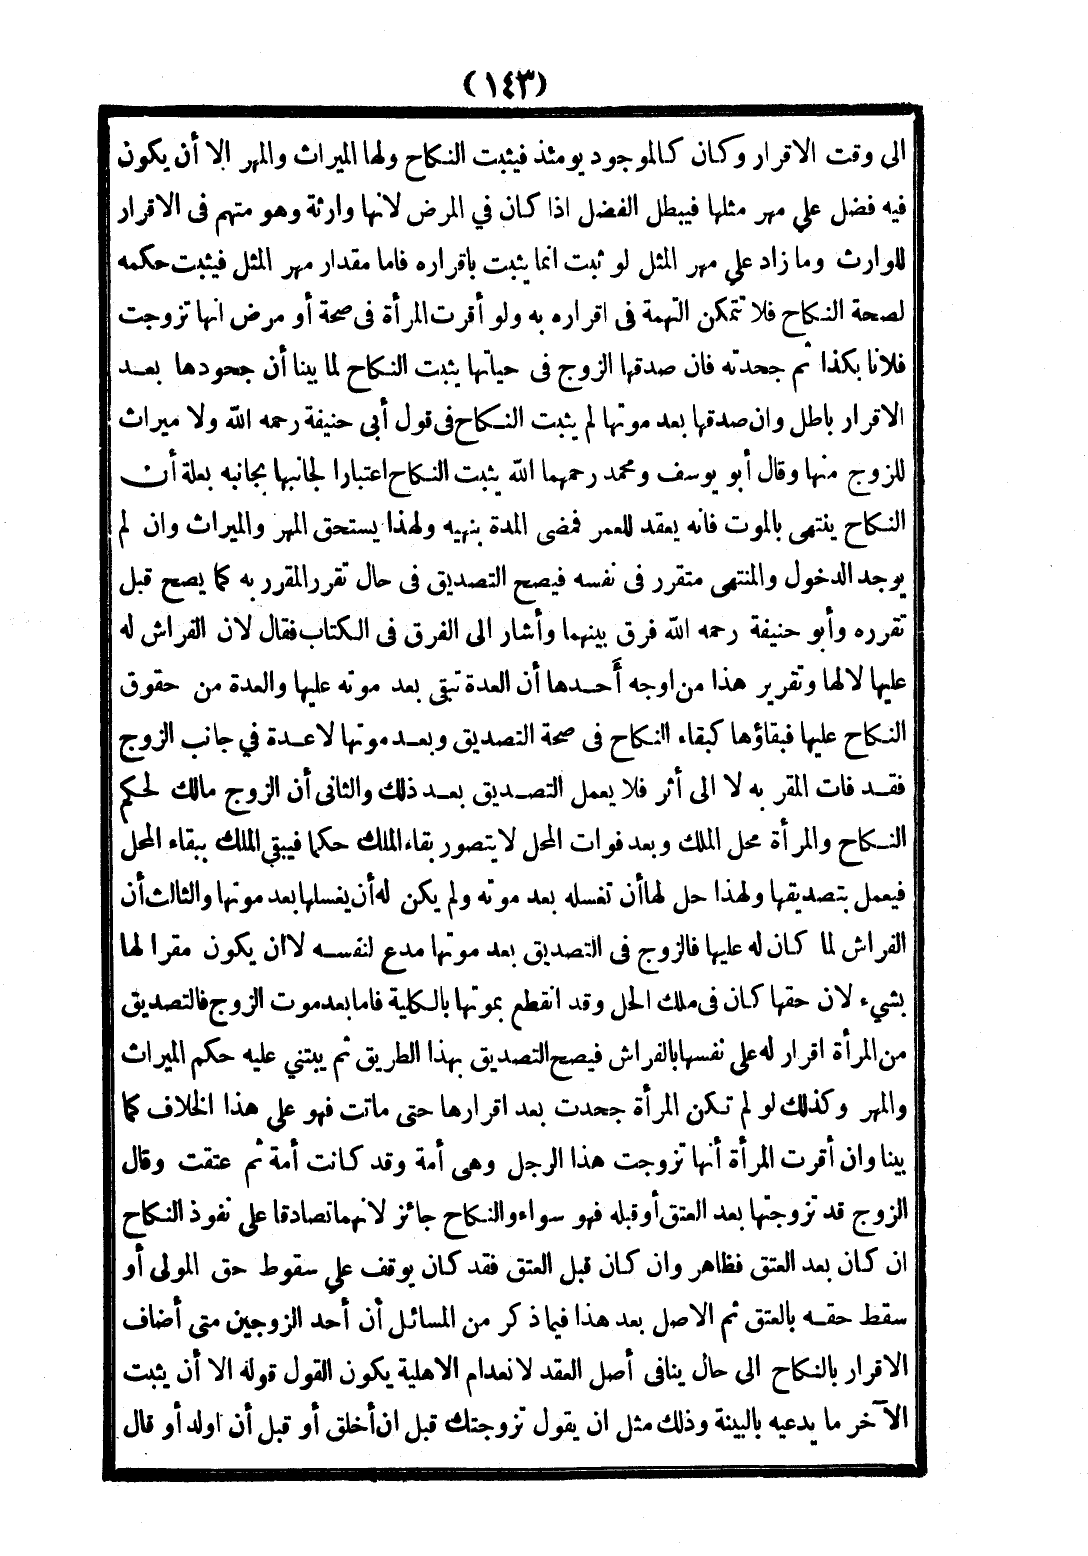 (١٤٣)
الى وقت الاقرار وكان كالموجود يومئذ فيثبت النكاح ولها الميراث والمهر الا أن يكون
فيه فضل علي مهر مثلها فيبطل الفضل اذا كان في المرض لانها وارثة وهو متهم فى الاقرار
للوارث وما زاد علي مهر المثل لو ثبت انما يثبت باقراره فاما مقدار مهر المثل فيثبت حكمه
لصحة النكاح فلا تتمكن التهمة فى اقراره به ولو أقرت المرأة فى صحة أو مرض انها تزوجت
فلانا بكذا ثم جحدته فان صدقها الزوج فى حياتها يثبت النكاح لما بينا أن جحودها بعد
الاقرار باطل وان صدقها بعد موتها لم يثبت النكاح فى قول أبى حنيفة رحمه الله ولا ميراث
للزوج منها وقال أبو يوسف ومحمد رحمهما الله يثبت النكاح اعتبارا لجانبها بجانبه بعلة أن
النكاح ينتهى بالموت فانه يعقد للعمر فمضى المدة ينهيه ولهذا يستحق المهر والميراث وان لم
يوجد الدخول والمنتهى متقرر فى نفسه فيصح التصديق فى حال تقرر المقر به كما يصح قبل
تقرره وأبو حنيفة رحمه الله فرق بينهما وأشار الى الفرق فى الكتاب فقال لان الفراش له
عليها لا لها وتقرير هذا من اوجه أحدها أن العدة تبقى بعد موته عليها والعدة من حقوق
النكاح عليها فبقاؤها كبقاء النكاح فى صحة التصديق وبعد موتها لا عدة في جانب الزوج
فقد فات المقر به لا الى أثر فلا يعمل التصديق بعد ذلك والثانى أن الزوج مالك لحكم
النكاح والمرأة محل الملك وبعد فوات المحل لا يتصور بقاء الملك حكما فيبقي الملك ببقاء المحل
فيعمل بتصديقها ولهذا حل لها أن تغسله بعد موته ولم يكن له أن يغسلها بعد موتها والثالث أن
الفراش لما كان له عليها فالزوج فى التصديق بعد موتها مدع لنفسه لا ان يكون مقرا لها
بشيء لان حقها كان فى ملك الحل وقد انقطع بموتها بالكلية فاما بعد موت الزوج فالتصديق
من المرأة اقرار له على نفسها بالفراش فيصح التصديق بهذا الطريق ثم يبتني عليه حكم الميراث
والمهر وكذلك لو لم تكن المرأة جحدت بعد اقرارها حتى ماتت فهو علي هذا الخلاف كما
بينا وان أقرت المرأة أنها تزوجت هذا الرجل وهى أمة وقد كانت أمة ثم عتقت وقال
الزوج قد تزوجتها بعد العتق أو قبله فهو سواء والنكاح جائز لانهما تصادقا علي نفوذ النكاح
ان كان بعد العتق فظاهر وان كان قبل العتق فقد كان يوقف علي سقوط حق المولى أو
سقط حقه بالعتق ثم الاصل بعد هذا فيما ذكر من المسائل أن أحد الزوجين متى أضاف
الاقرار بالنكاح الى حال ينافى أصل العقد لانعدام الاهلية يكون القول قوله الا أن يثبت
الآخر ما يدعيه بالبينة وذلك مثل ان يقول تزوجتك قبل ان أخلق أو قبل أن اولد أو قال